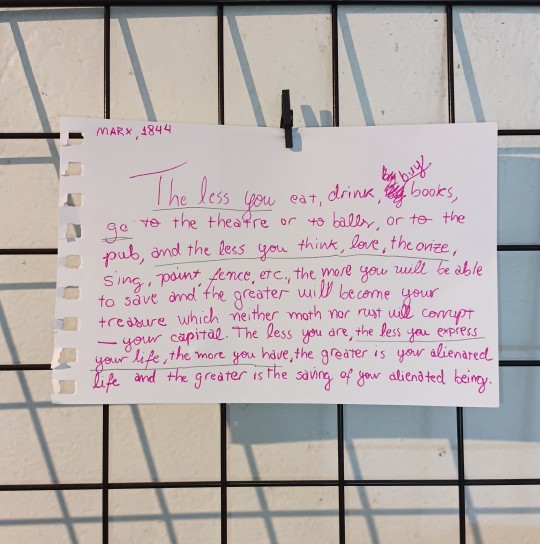 MARX, 1844
The less you eat, drink, buy books,
go to the theatre or to balls, or to the
pub, and the less you think, love, theorize,
sing, paint, fence, etc., the more you will be able
to save and the greater will become your
treasure which neither moth nor rust will corrupt
— your capital. The less you are, the less you express
your life, the more you have, the greater is your alienated
life and the greater is the saving of your alienated being.